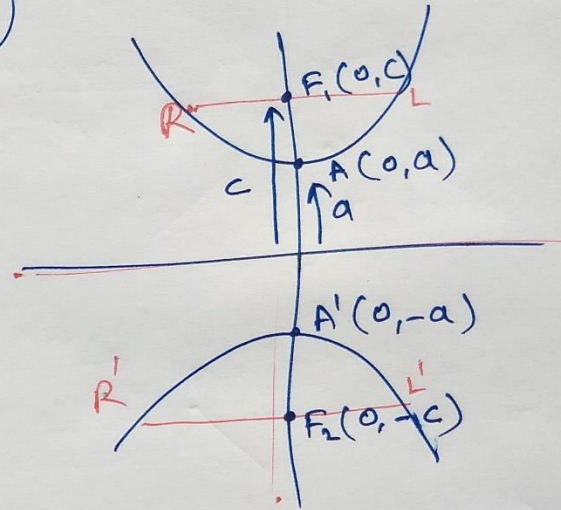 F₁(0,c)
R
L
A(0,a)
c
a
A'(0,-a)
R'
L'
F₂(0,-c)